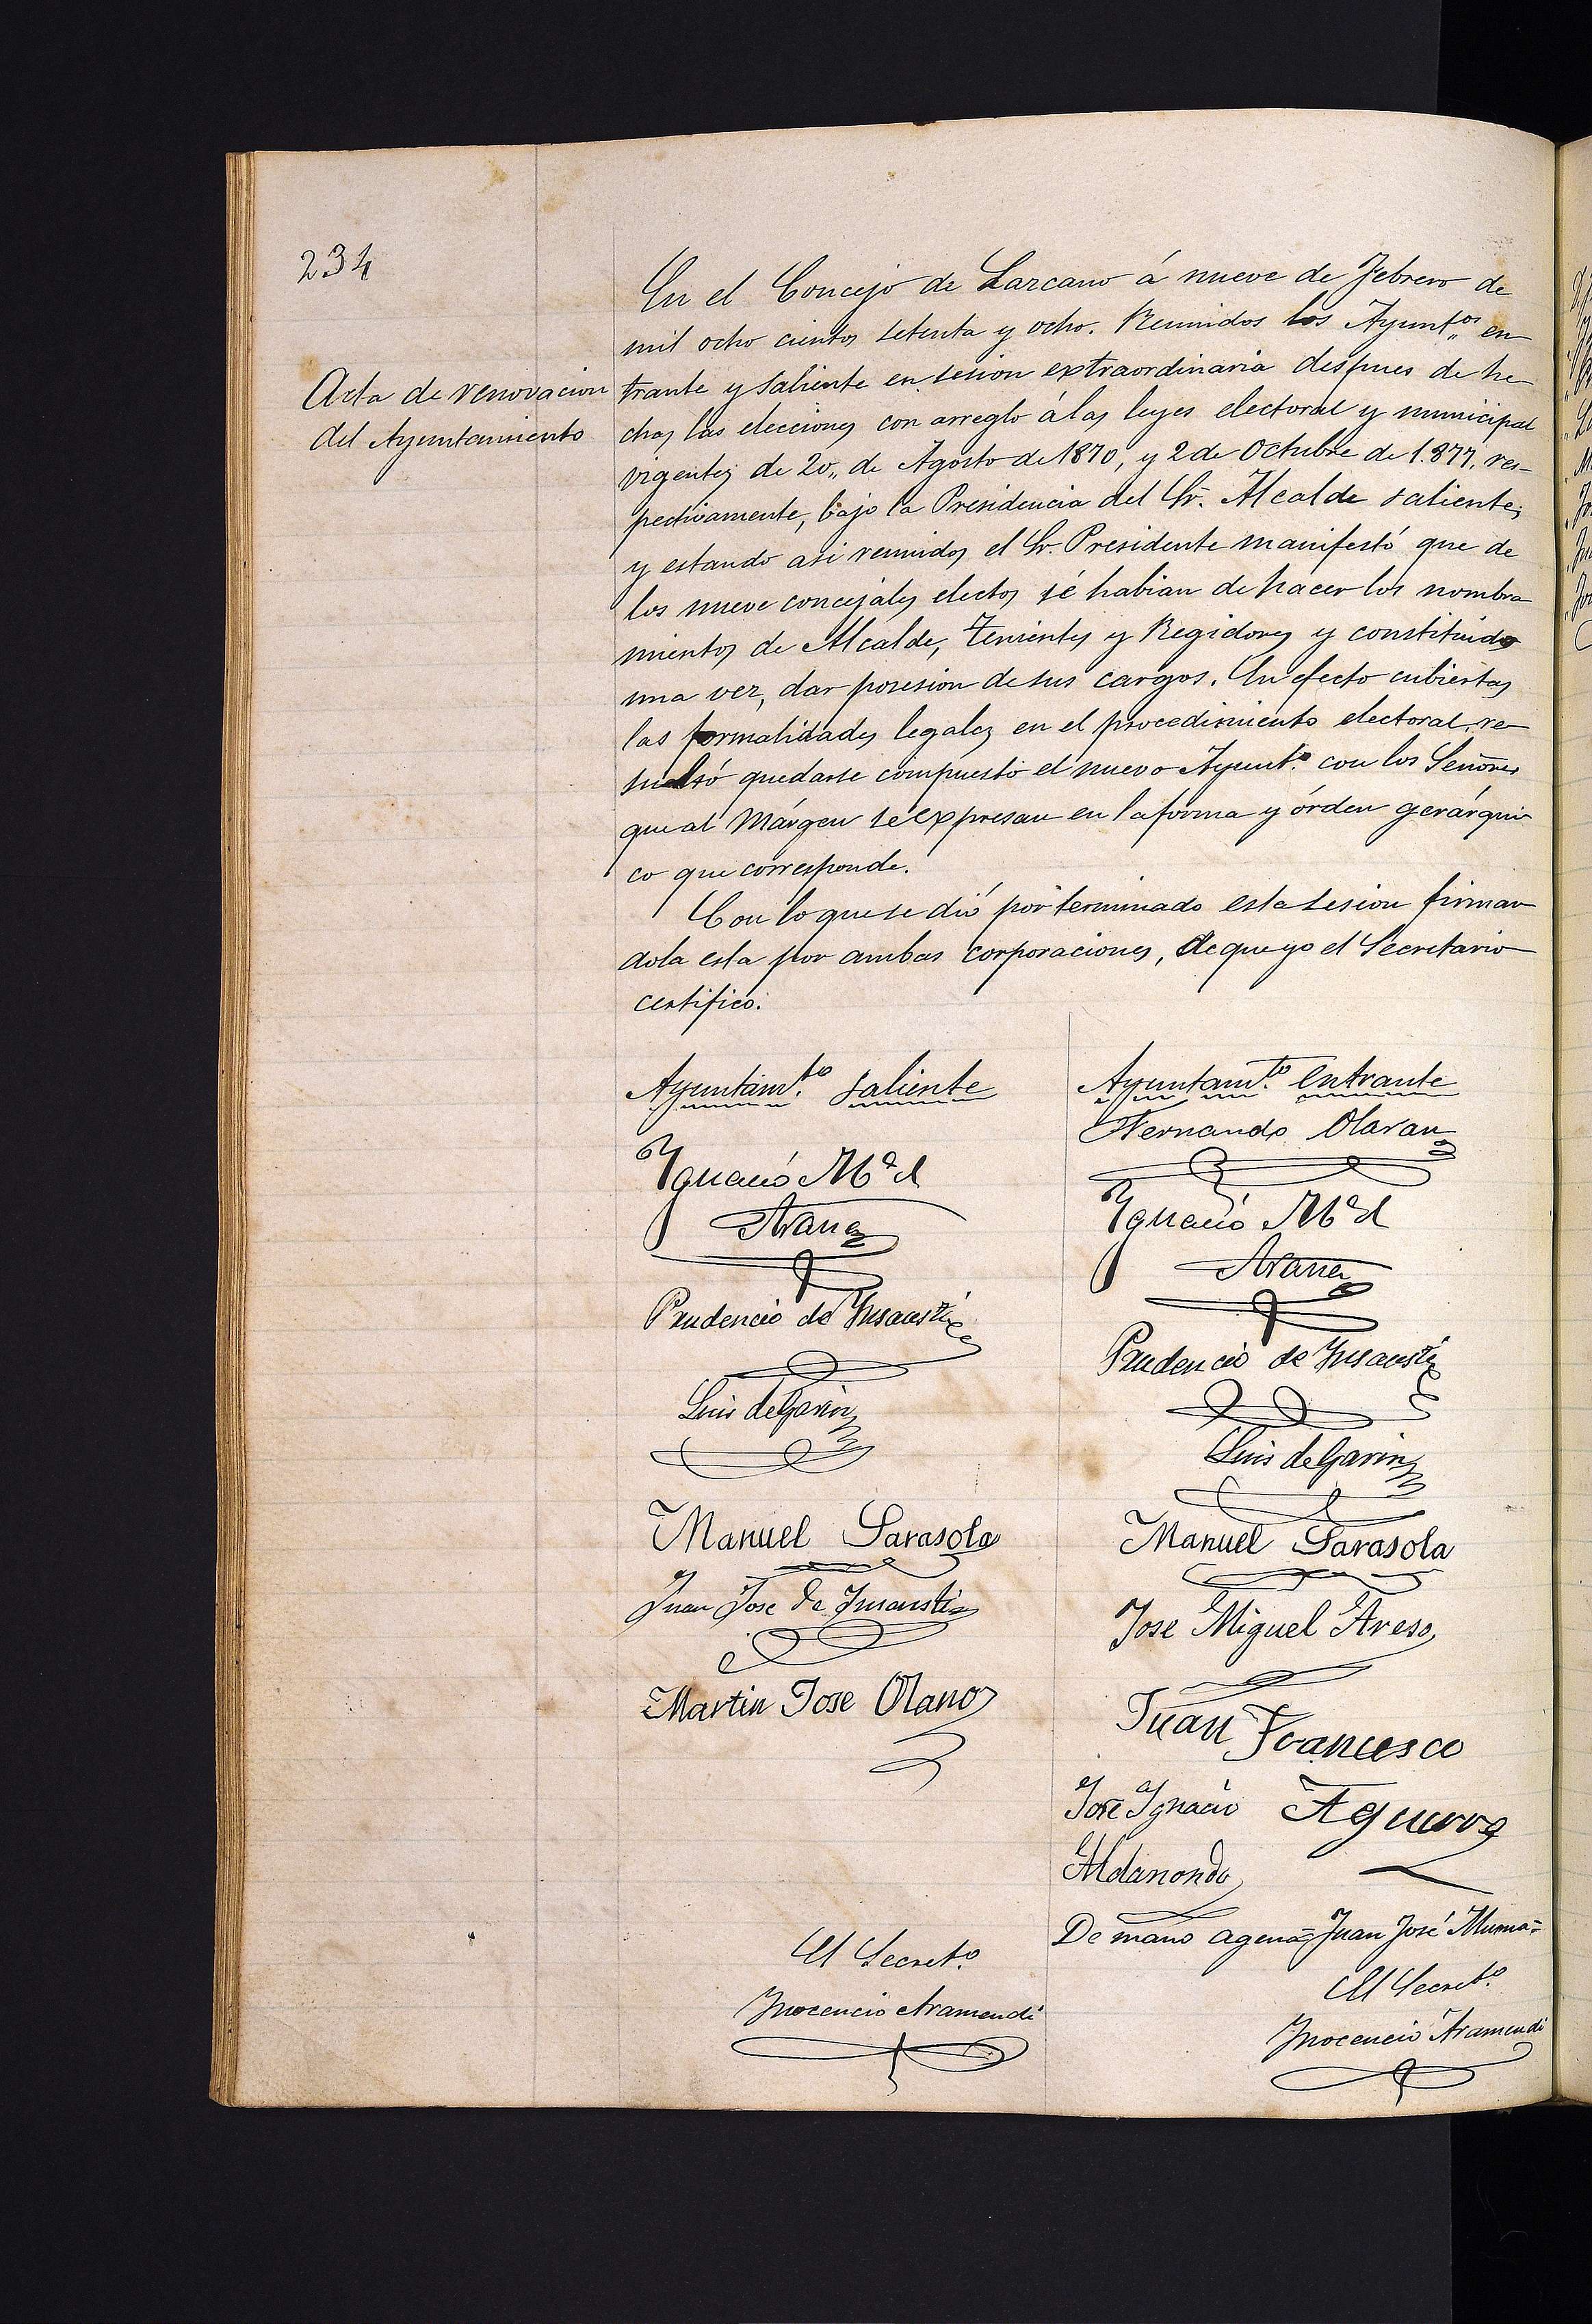 234
Acta de renovacion
del Ayuntamiento
En el Concejo de Lazcano á nueve de Febrero de
mil ocho cientos setenta y ocho. Reunidos los Ayunt.os en
trante y saliente en sesion extraordinaria despues de he-
chas las elecciones con arreglo á las leyes electoral y municipal
vigentes de 20,, de Agosto de 1870, y 2 de Octubre de 1.877, res-
pectivamente, bajo la Presidencia del Sr. Alcalde saliente;
y estando asi reunidos el Sr. Presidente manifestó que de
los nueve concejales electos sé habian de hacer los nombra
mientos de Alcalde, Tenientes y Regidores y constituido
una vez, dar posesion de sus cargos. En efecto cubiertas
las formalidades legales en el procedimiento electoral, re-
sultó quedarse compuesto el nuevo Ayunt.o con los Señores
que al márgen se expresan en la forma y órden gerárqui-
co que corresponde.
Con lo que se dió por terminado esta sesion firman
dola esta por ambas corporaciones, de que yo el Secretario
certifico.
Ayuntam.to saliente
Ygnacio M.a d
Arana
Prudencio de Insausti
Luis de Garin
Manuel Sarasola
Juan Jose de Insausti
Martin Jose Olano
El Secret.o
Inocencio Aramendi
Ayuntam.to entrante
Fernando Olaran
Ygnacio M.a d
Arana
Prudencio de Insausti
Luis de Garin
Manuel Sarasola
Jose Miguel Areso
Juan Francisco
José Ignacio Aguirre
Aldanondo
De mano agena= Juan José
El Secret.o
Inocencio Aramendi